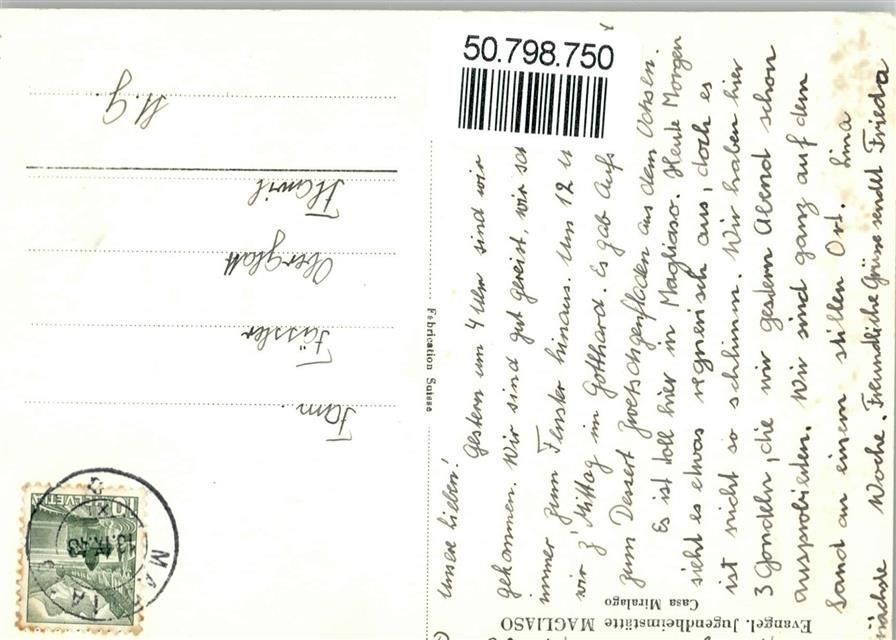 Evangel. Jugendheimstätte MAGLIASO
Casa Miralago
Fabrication Suisse
50.798.750
HELVETIA
10
13.IX.43
Fam.
Fässler
Oberglatt
Flawil
St. G.
Unsere Lieben!
Gestern um 4 Uhr sind wir
gekommen. Wir sind gut gereist, wir
immer zum Fenster hinaus. Um 12
wir z'Mittag im Gotthard. Es gab
zum Dessert Zwetschgenfladen aus dem Ochsen.
Es ist toll hier in Magliaso. Heute Morgen
sieht es etwas regnerisch aus, doch es
ist nicht so schlimm. Wir haben hier
3 Gondeln, die wir gestern Abend schon
ausprobierten. Wir sind ganz auf dem
Land an einem stillen Ort. Lina
Woche. Freundliche Grüsse sendet Frieda